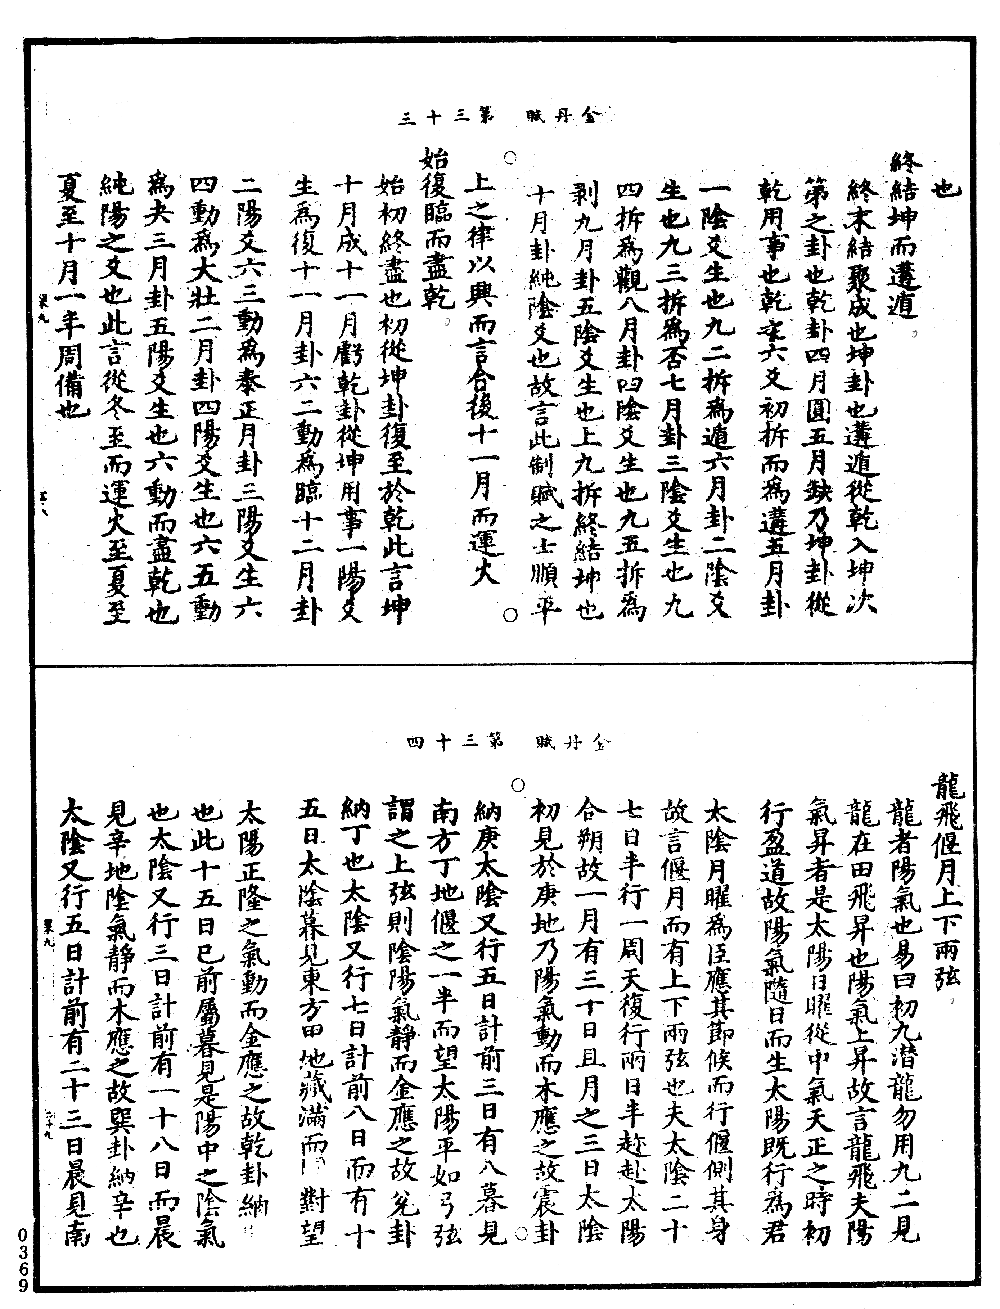 金丹賦　第三十三
也
終結坤而遘遁。
終末結聚成也坤卦也遘遁從乾入坤次
第之卦也乾卦四月圓五月缺乃坤卦從
乾用事也乾家六爻初拆而為遘五月卦
一陰爻生也九二拆為遁六月卦二陰爻
生也九三拆為否七月卦三陰爻生也九
四拆為觀八月卦四陰爻生也九五拆為
剥九月卦五陰爻生也上九拆終結坤也
十月卦純陰爻也故言此制賦之士順平
上之律以興而言合後十一月而運火
始復臨而盡乾。
始初終盡也初從坤卦復至於乾此言坤
十月成十一月虧乾卦從坤用事一陽爻
生為復十一月卦六二動為臨十二月卦
二陽爻六三動為泰正月卦三陽爻生六
四動為大壯二月卦四陽爻生也六五動
為夬三月卦五陽爻生也六動而盡乾也
純陽之爻也此言從冬至而運火至夏至
夏至十月一年周備也
金丹賦　第三十四
龍飛偃月上下兩弦。
龍者陽氣也易曰初九潛龍勿用九二見
龍在田飛昇也陽氣上昇故言龍飛夫陽
氣昇者是太陽日曜從中氣天正之時初
行盈道故陽氣隨日而生太陽既行為君
太陰月曜為臣應其節候而行偃側其身
故言偃月而有上下兩弦也夫太陰二十
七日半行一周天復行兩日半趂赴太陽
合朔故一月有三十日且月之三日太陰
初見於庚地乃陽氣動而木應之故震卦
納庚太陰又行五日計前三日有八暮見
南方丁地偃之一半而望太陽平如弓弦
謂之上弦則陰陽氣靜而金應之故兌卦
納丁也太陰又行七日計前八日而有十
五日太陰暮見東方甲地藏滿而對望
太陽正隆之氣動而金應之故乾卦納
也此十五日已前屬暮見是陽中之陰氣
也太陰又行三日計前有一十八日而晨
見辛地陰氣靜而木應之故巽卦納辛也
太陰又行五日計前有二十三日晨見南
0369